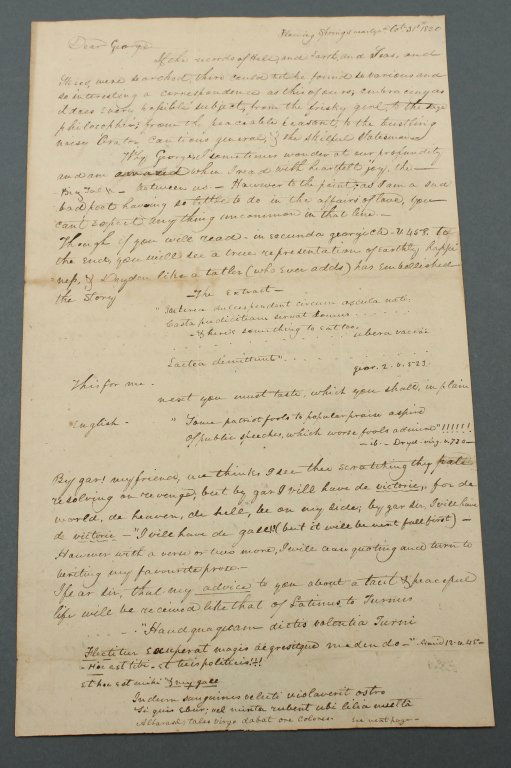 Dear George
If the records of Hell, and Earth, and Seas, and
Skies, were searched, there could not be found so various and
so interesting a correspondence as this of ours; embracing as
it does every possible subject, from the frisky girl, to the sage
philosopher; from the peaceable peasant, to the bustling
noisy Orator, cautious general, & the skilful Statesman
Why George, I sometimes wonder at our profundity
and am amazed when I read with heartfelt joy, the
between us - However to the point; as I am a sad
bad poet having so little to do in the affairs of love, you
cant expect any thing uncommon in that line -
Though if you will read - in secunda georgick - v. 458. to
the end, you will see a true representation of earthly happi
ness, & Dryden like a tatler (who ever adds) has embellished
the Story
- The Extract -
"Interea dulces pendent circum oscula nati:
Casta pudicitiam servat domus . . . . .
- & here's something to eat too.
ubera vaccae
Lactea demittunt" . .
geor. 2. v. 523.
This for me - next you must taste, which you shall, in plain
English - "Some patriot fools to popular praise aspire
Of public speeches, which worse fools admire"!!!!!!
- ib. - Dryd. virg. v. 730 -
By gar! my friend, me thinks I see thee scratching thy pate
resolving on revenge, but by gar I vill have de victorie, for de
world, de heaven, de hell, be on my side; by gar sir, I vill have
de victorie - "I vill have de gall!! (but it will be next fall first) -
However with a verse or two more, I will cease quoting and turn to
writing my favourite prose -
I fear sir, that my advice to you about a tacit & peaceful
life will be received like that of Latinus to Turnus
"Haudquaquam dictis violentia Turni
Flectitur exuperat magis aegrescitque medendo -" Aeneid 12. v. 45 -
- Hoc est tibi - Et tuis politicis!!!
Et hoc est mihi & my gall
Indum sanguineo veluti violaverit ostro
Si quis ebur; vel mixta rubent ubi lilia multa
Alba rosa; tales virgo dabat ore colores. See next page -